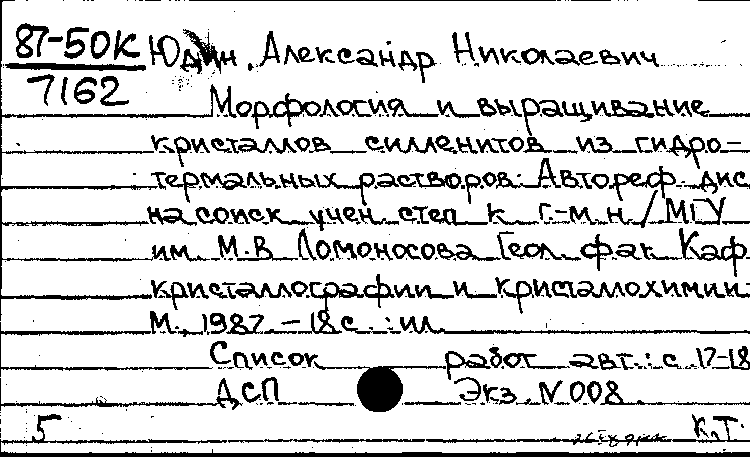 87-50К Юдин, Александр Николаевич
7162
Морфология и выращивание
кристаллов силленитов из гидро-
термальных растворов: Автореф. дис
на соиск учен. степ к. г.-м. н. / МГУ
им. М.В Ломоносова Геол. фак Каф
кристаллографии и кристаллохимии.
М., 1987. – 18 с. : ил.
Список работ авт.: с. 17-18
ДСП Экз. N 008.
5 К.Т.